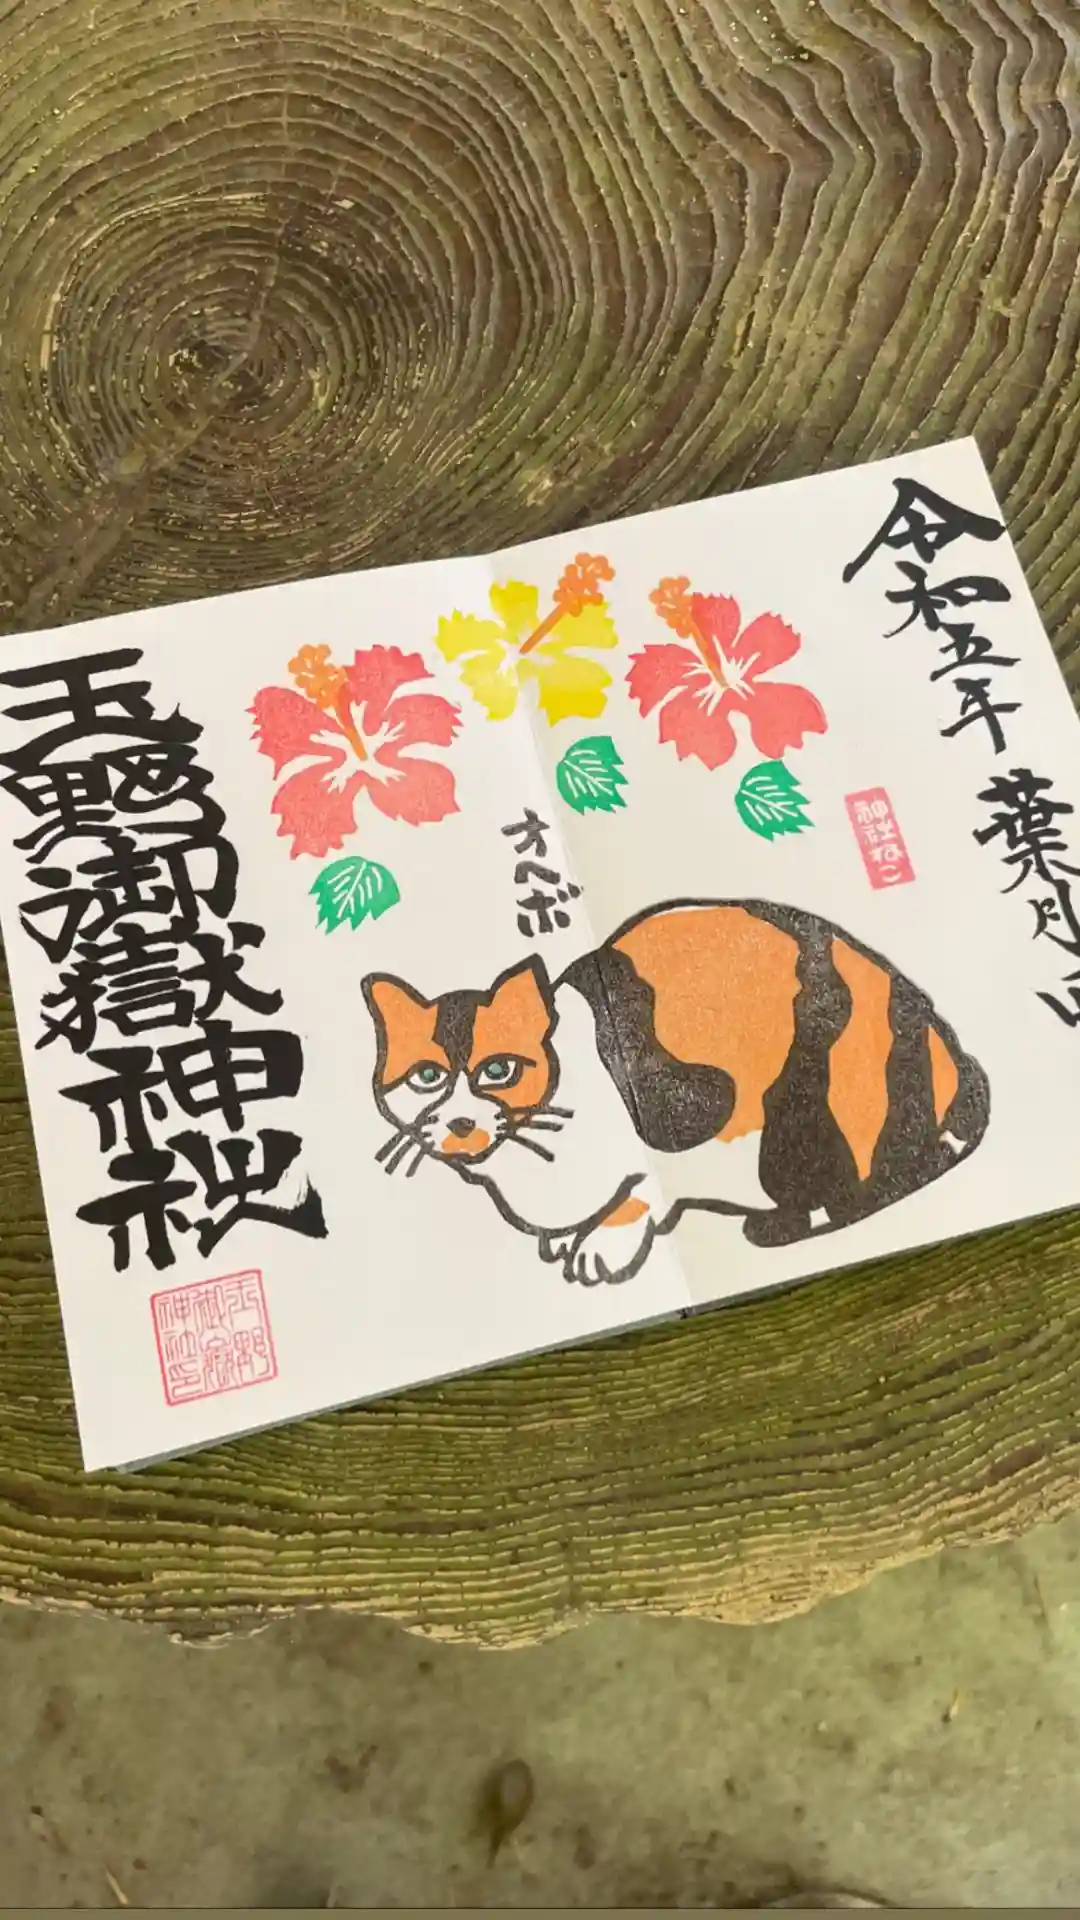 令和五年 葉月
神社ねこ
オヘボ
玉野御嶽神社
玉野
御嶽
神社印